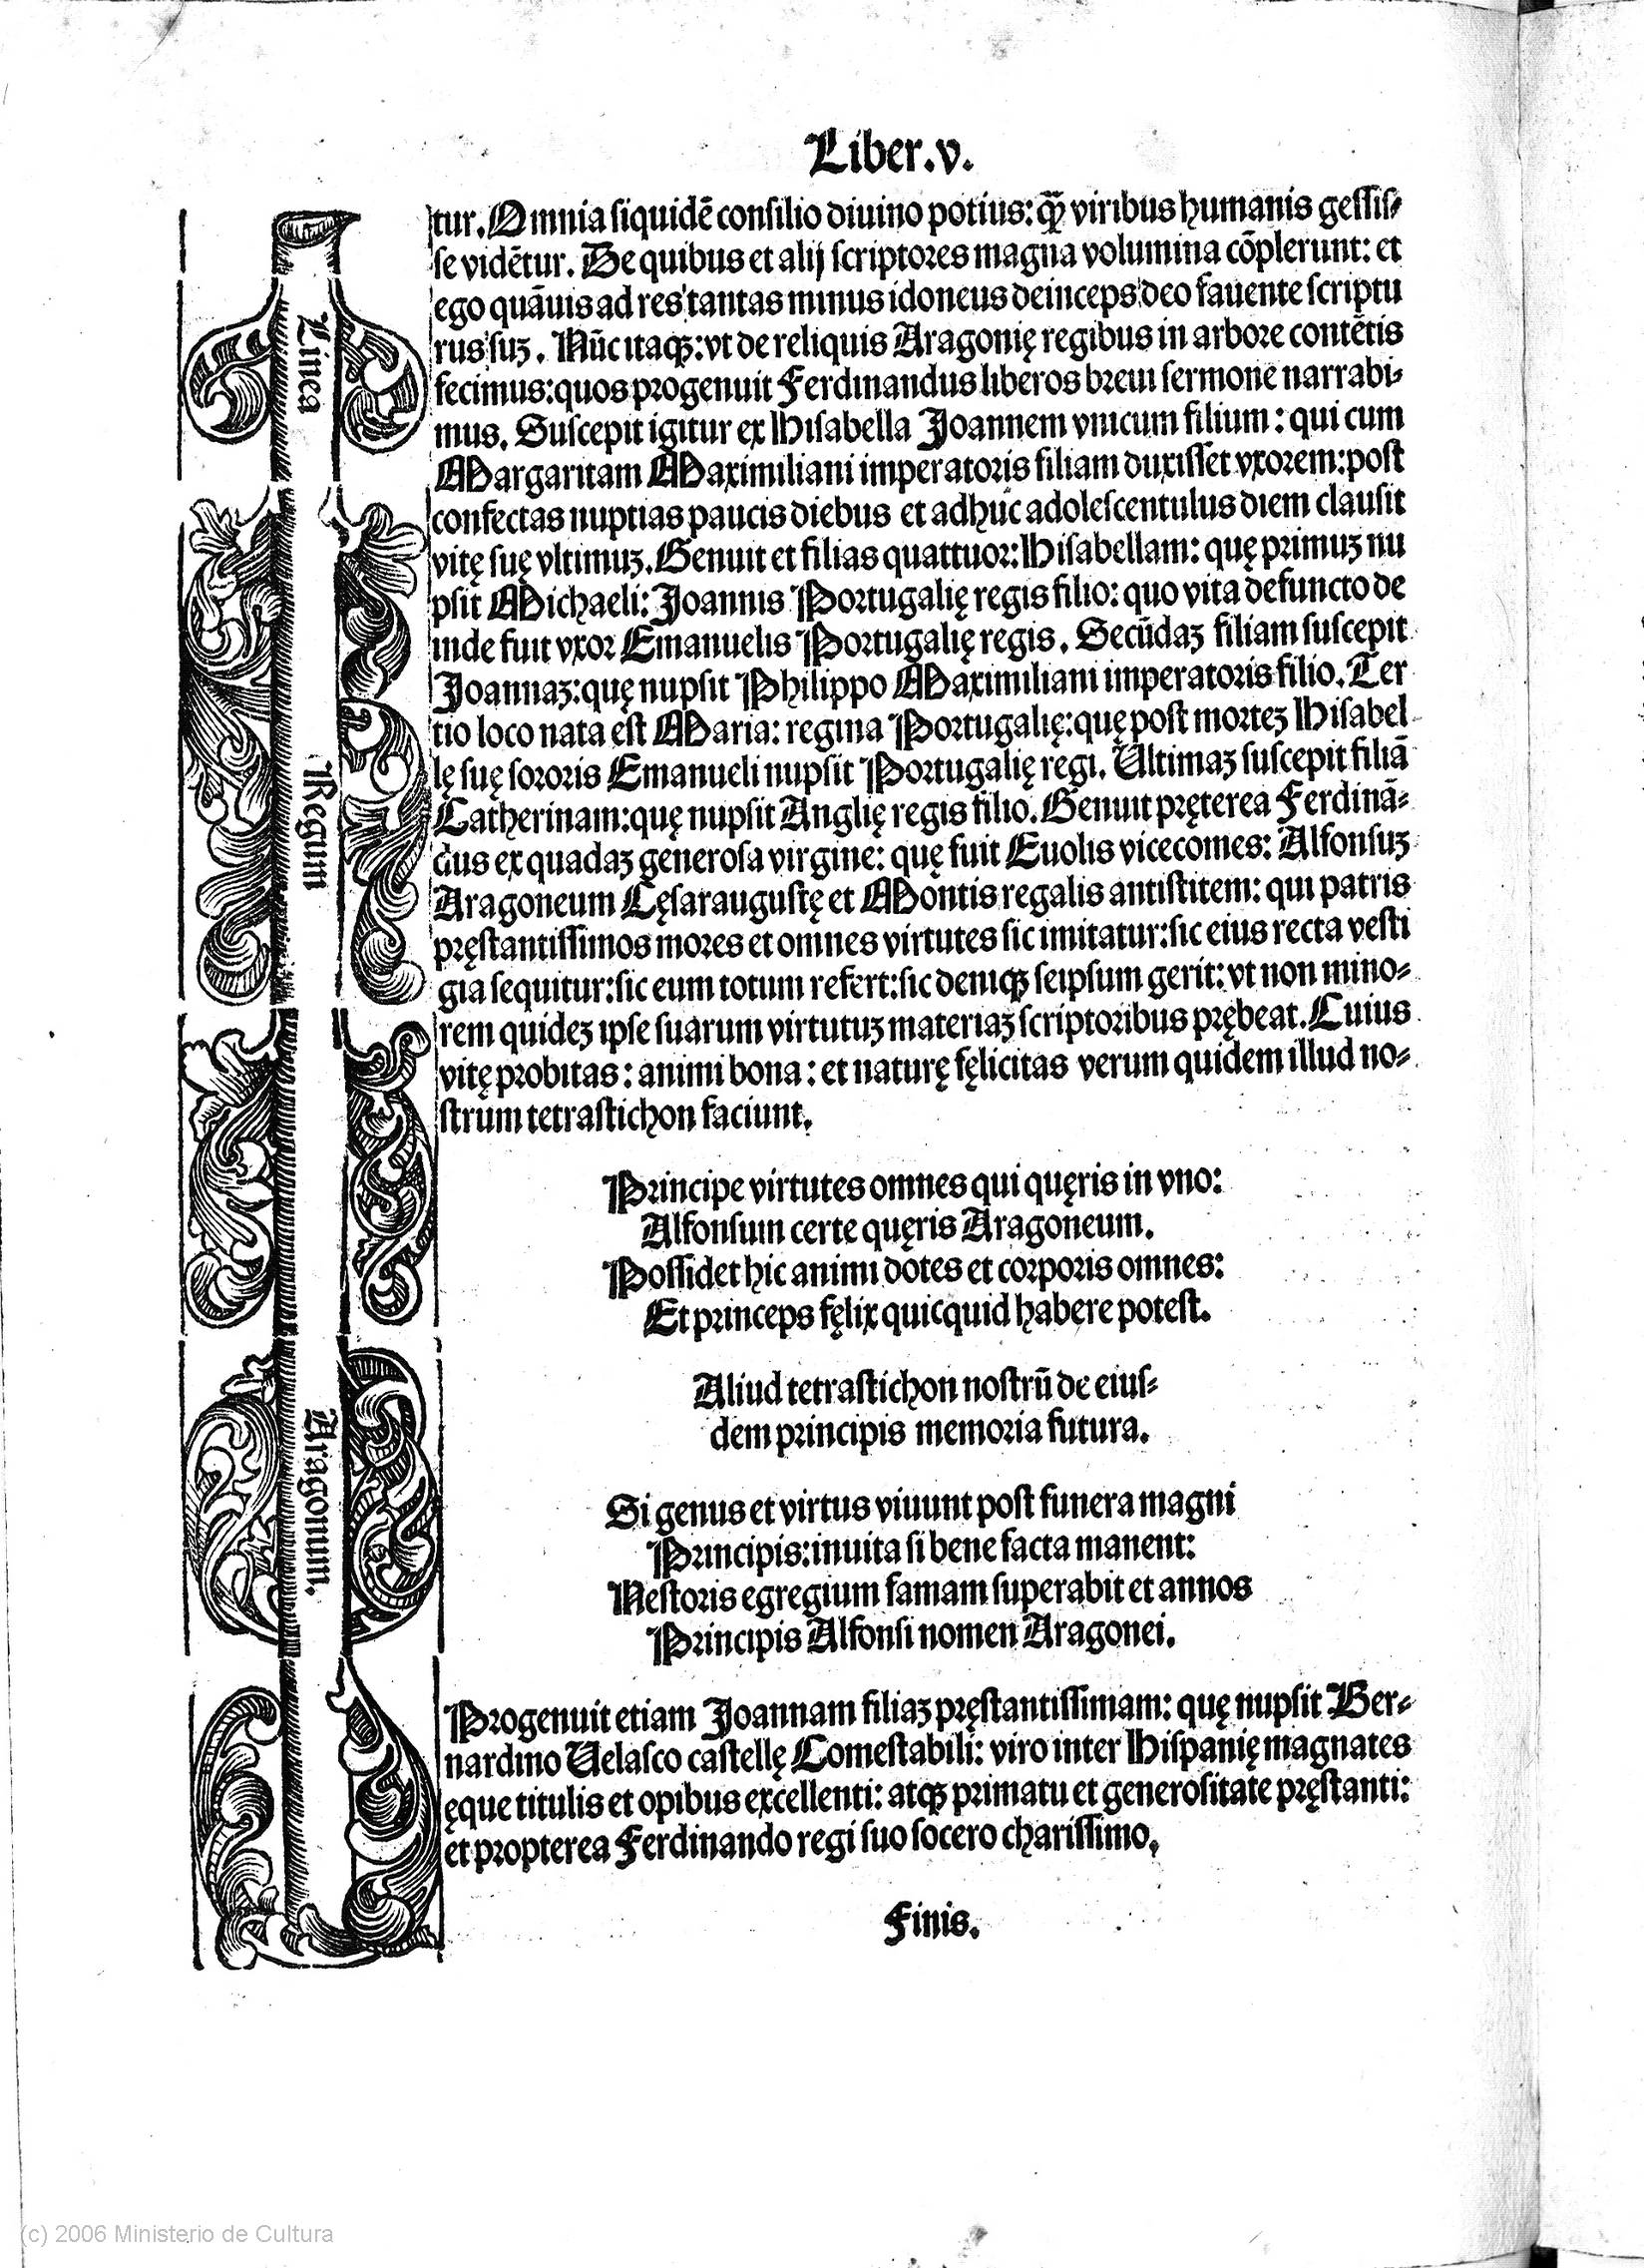 Liber.v.
tur. Omnia siquidē consilio diuino potius: qꝫ̄ viribus humanis gessis-
se vidētur. De quibus et alij scriptores magna volumina cōplerunt: et
ego quāuis ad res tantas minus idoneus deinceps deo fauente scriptu
rus suꝫ. Nūc itaqꝫ: vt de reliquis Aragonię regibus in arbore contētis
fecimus: quos progenuit Ferdinandus liberos breui sermone narrabi-
mus. Suscepit igitur ex Hisabella Joannem vnicum filium: qui cum
Margaritam Maximiliani imperatoris filiam duxisset vxorem: post
confectas nuptias paucis diebus et adhuc adolescentulus diem clausit
vitę suę vltimuꝫ. Genuit et filias quattuor: Hisabellam: quę primuꝫ nu
psit Michaeli: Joannis Portugalię regis filio: quo vita defuncto de
inde fuit vxor Emanuelis Portugalię regis. Secūdaꝫ filiam suscepit
Joannaꝫ: quę nupsit Philippo Maximiliani imperatoris filio. Ter
tio loco nata est Maria: regina Portugalię: quę post morteꝫ Hisabel
lę suę sororis Emanueli nupsit Portugalię regi. Ultimaꝫ suscepit filiā
Catherinam: quę nupsit Anglię regis filio. Genuit pręterea Ferdinā-
dus ex quadaꝫ generosa virgine: quę fuit Euolis vicecomes: Alfonsuꝫ
Aragoneum Cęsaraugustę et Montis regalis antistitem: qui patris
pręstantissimos mores et omnes virtutes sic imitatur: sic eius recta vesti
gia sequitur: sic eum totum refert: sic deniqꝫ seipsum gerit: vt non mino-
rem quideꝫ ipse suarum virtutuꝫ materiaꝫ scriptoribus prębeat. Cuius
vitę probitas: animi bona: et naturę fęlicitas verum quidem illud no-
strum tetrastichon faciunt.
Principe virtutes omnes qui quęris in vno:
Alfonsum certe quęris Aragoneum.
Possidet hic animi dotes et corporis omnes:
Et princeps fęlix quicquid habere potest.
Aliud tetrastichon nostrū de eius-
dem principis memoria futura.
Si genus et virtus viuunt post funera magni
Principis: inuita si bene facta manent:
Nestoris egregium famam superabit et annos
Principis Alfonsi nomen Aragonei.
Progenuit etiam Joannam filiaꝫ pręstantissimam: quę nupsit Ber-
nardino Uelasco castellę Comestabili: viro inter Hispanię magnates
ęque titulis et opibus excellenti: atqꝫ primatu et generositate pręstanti:
et propterea Ferdinando regi suo socero charissimo.
Finis.
Linea
Regum
Aragonum.
(c) 2006 Ministerio de Cultura